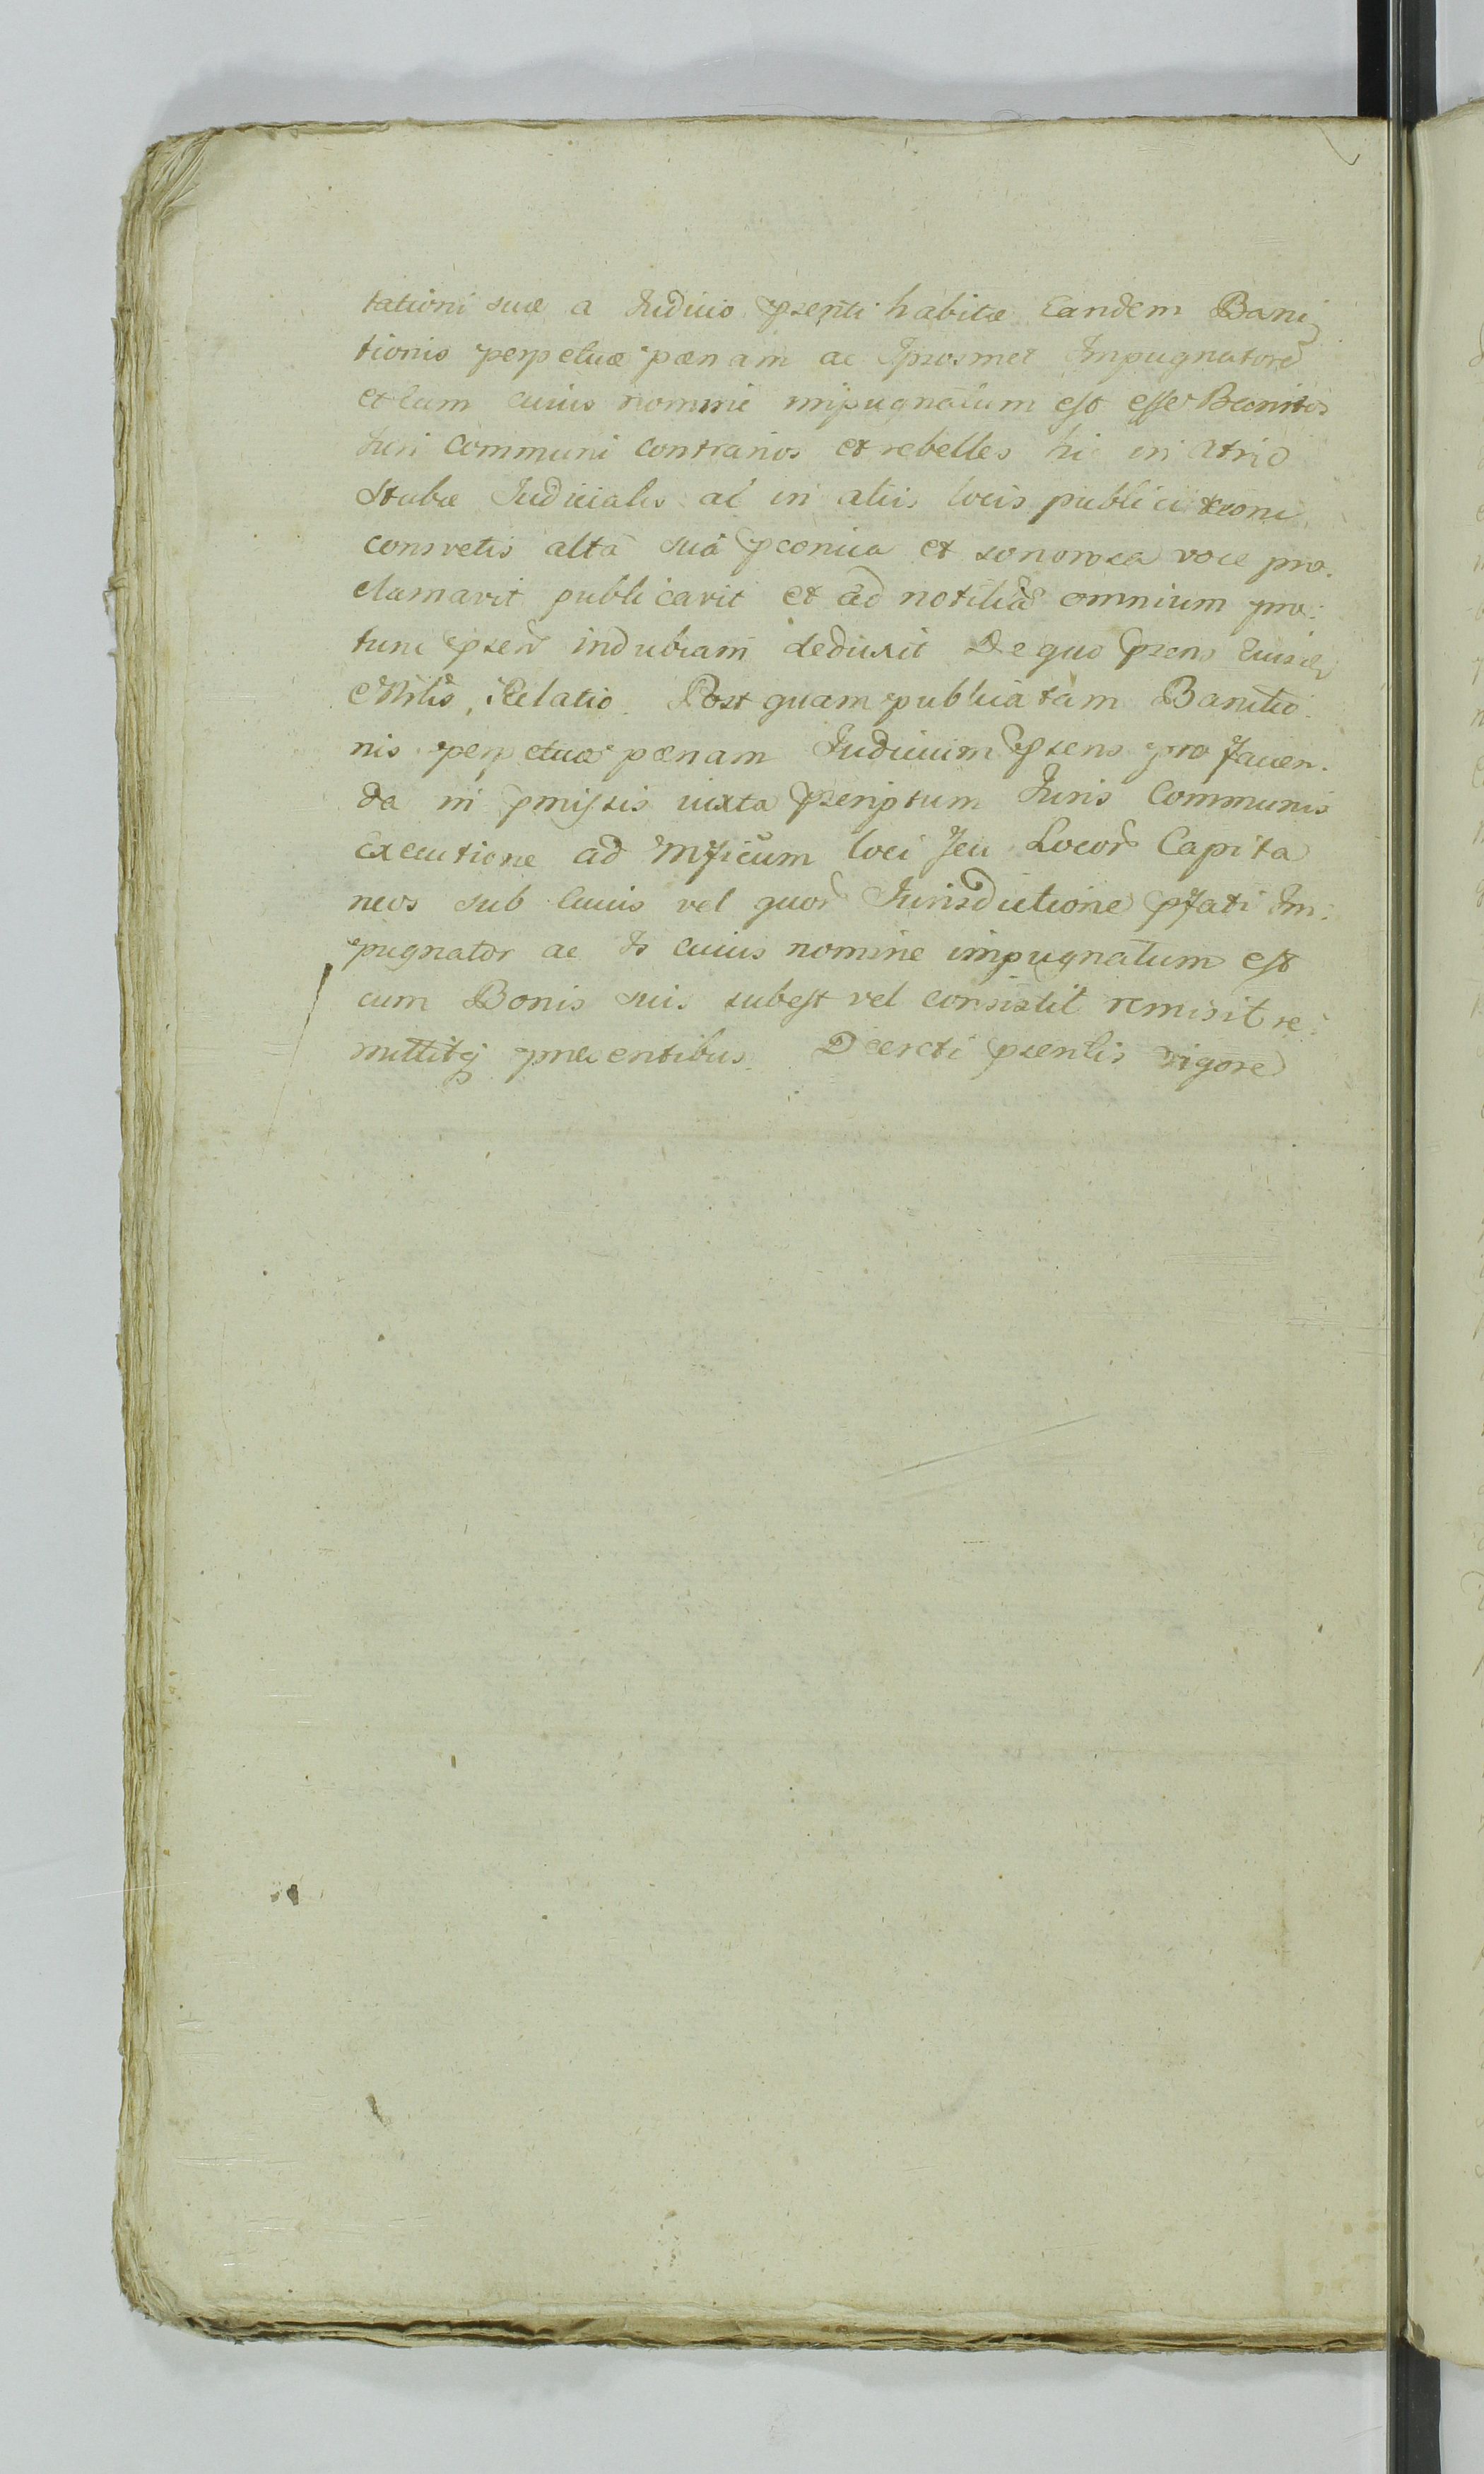 tationi suæ a Judicio psenti habitæ Eandem Bani
tionis perpetuæ pænam ac Ipsosmet Impugnatore
et eum cuius nomine impugnatum est esse Banitos
Juri Communi contrarios et rebelles hic in atrio
Stubæ Judicialis ac in aliis locis publicis
consvetis alta sua pconica et sonorosa voce pro.
clamavit publicavit et ad notitiã omnium pro:
tunc psen indubiam deduxit De quo psens
Relatio. Post quam publicatam Banitio.
nis perpetuæ pænam Judicium psens pro facien.
da in pmissis iuxta pscriptum Juris Communis
Executione ad Mficum loci seu Locor Capita
neos sub cuius vel quor Jurisdictione pfati Im:
pugnator ac Is cuius nomine impugnatum est
cum Bonis suis subest vel consistit remisit re:
mittitq Decreti psentis vigore